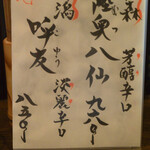 森
芳醇辛口
陸奥八仙 九八〇
潟
呼友
淡麗辛口
八五〇